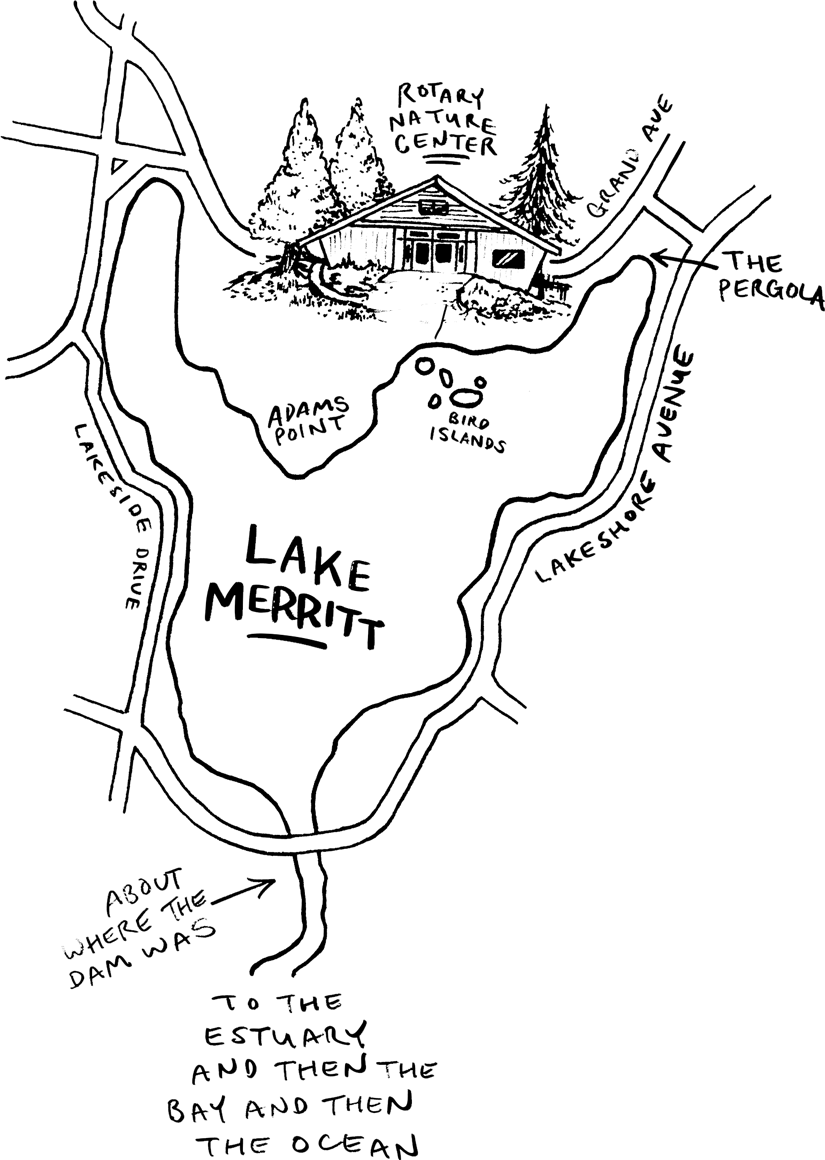 ROTARY
NATURE
CENTER
GRAND AVE
THE
PERGOLA
ADAMS
POINT
BIRD
ISLANDS
LAKESHORE AVENUE
LAKESIDE DRIVE
LAKE
MERRITT
ABOUT
WHERE THE
DAM WAS
TO THE
ESTUARY
AND THEN THE
BAY AND THEN
THE OCEAN